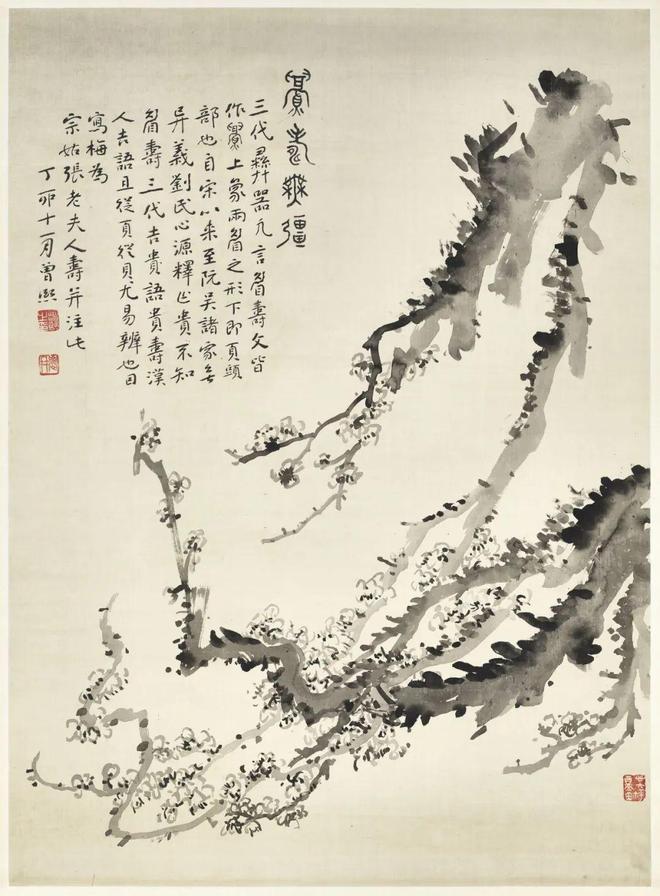 眉壽無疆
三代彝器凡言眉壽文皆
作釁上象兩眉之形下即頁頭
部也自宋以來至阮吳諸家無
异義劉氏心源釋貴不知
眉壽三代吉貴語貴壽漢
人吉語且從頁從貝尤易辨也因
寫梅為
宗姑張老夫人壽并注此
丁卯十一月曾熙